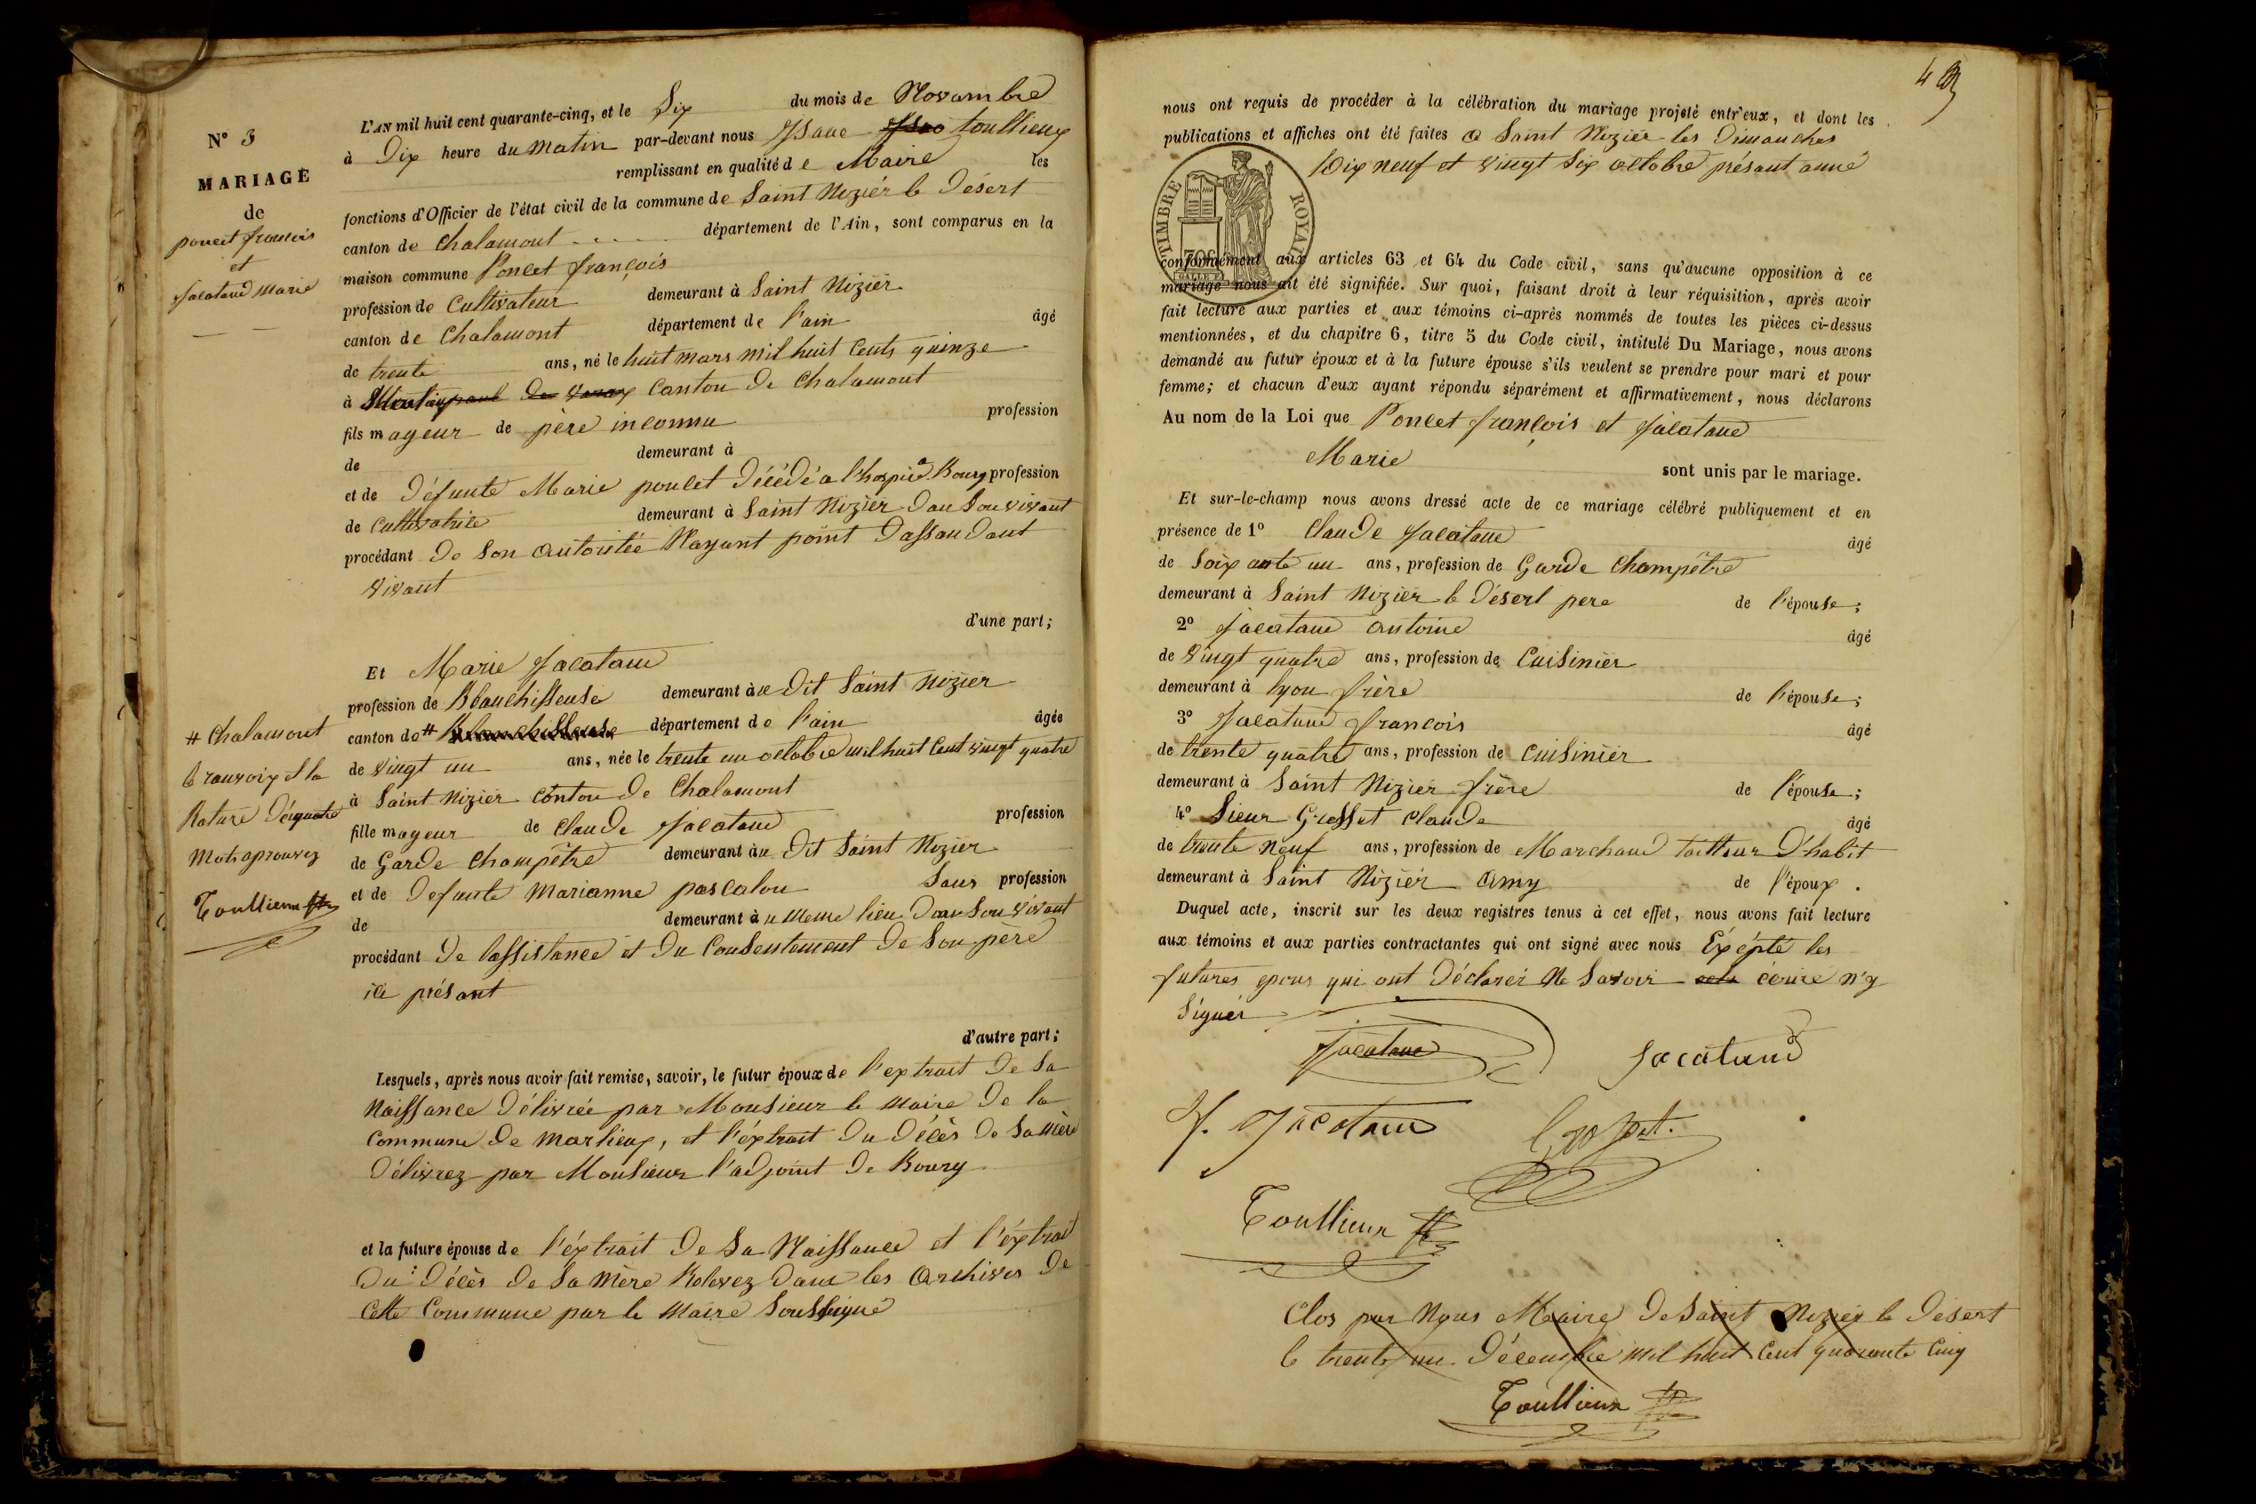 N° 3
MARIAGE
de
poncet francois
et
Jacatand Marie
L'AN mil huit cent quarante-cinq, et le Six du mois de Novambre
à Dix heure du Matin par-devant nous toullieux
remplissant en qualité de Maire les
fonctions d'Officier de l'état civil de la commune de Saint Nizier le Désert
canton de Chalamont département de l'Ain, sont comparus en la
maison commune Poncet françois
profession de Cultivateur demeurant à Saint Nizier
canton de Chalamont département de l'ain âgé
de trente ans, né le huit mars mil huit Cents quinze
à Canton de Chalamont
fils mageur de père inconnu profession
de demeurant à
et de Défunte Marie poncet Décédé a l'hospice Bourg profession
de Cultivatrice demeurant à Saint Nizier Dan Son vivant
procédant De Son autoritée Nayant point Dassandant
vivant
d'une part;
Et Marie Jacatand
profession de Blanchisseuse demeurant à u Dit Saint Nizier
canton de # Blanchisseuse département de l'ain âgée
de vingt un ans, née le trente un octobre mil huit Cent vingt quatre
à Saint Nizier Canton De Chalamont
fille mageur de Claude Jacatand profession
de Garde Champêtre demeurant àu Dit Saint Nizier
et de Defunte Marianne pascalou Sans profession
de demeurant à u meme lieu Dan Son vivant
procédant De lassistance et Du Consentement De Son père
ici présant
d'autre part;
# Chalamont
le ranvoix et la
Rature De quatre
Mots aprouvez
Toullieux
Lesquels, après nous avoir fait remise, savoir, le futur époux de l'extrait De Sa
Naissance Délivrée par Monsieur le Maire De la
Commune De Marlieux, et l'éxtrait Du Décès De Sa Mère
Délivrez par Monsieur l'adjoint De Bourg
et la future épouse de l'éxtrait De Sa Naissance et l'éxtrait
Du Décès De Sa Mère Relevez Dans les Archives De
Cette Commune par le Maire Soussigné
4
nous ont requis de procéder à la célébration du mariage projeté entr'eux, et dont les
publications et affiches ont été faites a Saint Nizier les Dimanches
Dix neuf et vingt Six octobre présant anné
TIMBRE ROYAL
conformément aux articles 63 et 64 du Code civil, sans qu'aucune opposition à ce
mariage nous ait été signifiée. Sur quoi, faisant droit à leur réquisition, après avoir
fait lecture aux parties et aux témoins ci-après nommés de toutes les pièces ci-dessus
mentionnées, et du chapitre 6, titre 5 du Code civil, intitulé Du Mariage, nous avons
demandé au futur époux et à la future épouse s'ils veulent se prendre pour mari et pour
femme; et chacun d'eux ayant répondu séparément et affirmativement, nous déclarons
Au nom de la Loi que Poncet françois et Jacatand
Marie sont unis par le mariage.
Et sur-le-champ nous avons dressé acte de ce mariage célébré publiquement et en
présence de 1° Claude Jacatand âgé
de Soixante un ans, profession de Garde Champêtre
demeurant à Saint Nizier le Désert pere de l'épouse;
2° Jacatand antoine âgé
de vingt quatre ans, profession de Cuisinier
demeurant à lyon frère de l'épouse;
3° Jacatand francois âgé
de trente quatre ans, profession de Cuisinier
demeurant à Saint Nizier frère de l'épouse;
4° Sieur Grosset Claude âgé
de trente Neuf ans, profession de Marchand tailleur D'habit
demeurant à Saint Nizier amy de l'époux.
Duquel acte, inscrit sur les deux registres tenus à cet effet, nous avons fait lecture
aux témoins et aux parties contractantes qui ont signé avec nous Éxépté les
futures epous qui ont Déclarez Ne Savoir écrire n'y
Signer
Jacatand Jacatand
f. Jacatand Grosset.
Toullieux
Clos par Nous Maire De Saint Nizier le Désert
le trente un Décembre mil huit Cent quarante Cinq
Toullieux